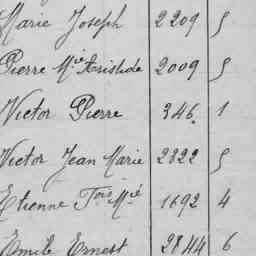 Marie Joseph 2209 5
Pierre Mie Aristide 2009 5
Victor Pierre 346. 1
Victor Jean Marie 2822 5
Etienne Fois Mie 1692 4
Emile Ernest 2844 6